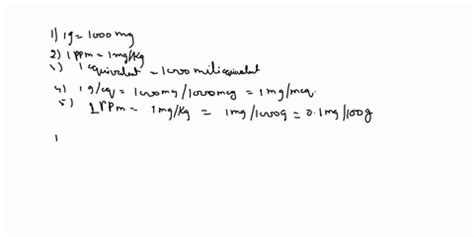 1) 1g = 1000 mg
2) 1 ppm = 1 mg/kg
3) 1 equivalent = 1000 miliequivalent
4) 1 g/eq = 1000 mg/1000 meq = 1 mg/meq.
5) 1 ppm = 1 mg/kg = 1mg/1000g = 0.1mg/100g
1